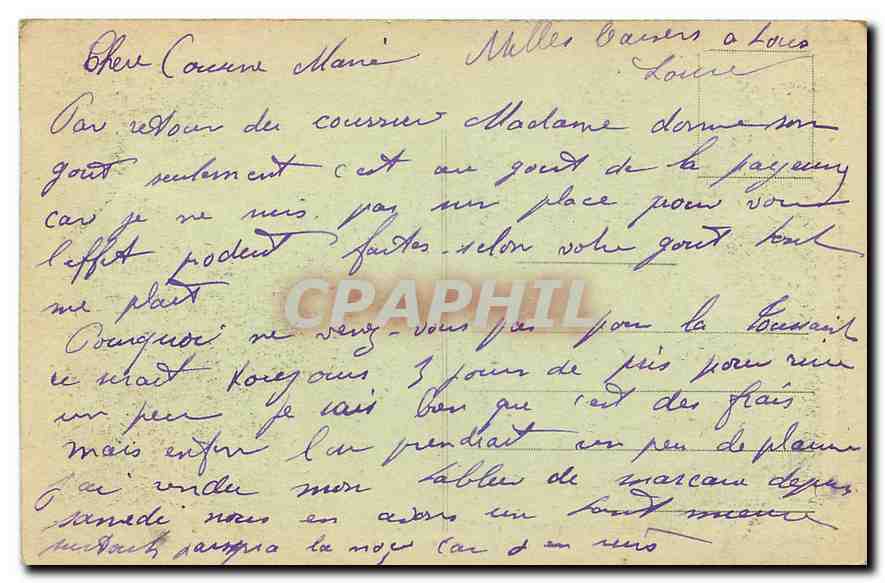 Chere Cousine Marie
Milles baisers a tous
Louise
Par retour du courrier Madame donne son
gout seulement c'est au gout de la
car je ne suis pas sur place pour voir
l'effet faites selon votre gout tout
me plait
CPAPHIL
Pourquoi ne venez-vous pas pour la Toussaint
ce serait toujours 3 jours de pris pour rire
un peu je sais bien que c'est des frais
mais enfin l'on prendrait un peu de plaisir
j'ai vendu mon de depuis
samedi nous en avons un
surtout la car